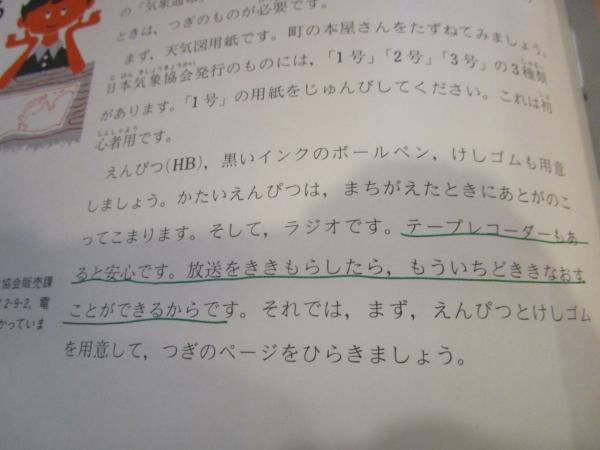 の「気象通報
ときは，つぎのものが必要です。
まず，天気図用紙です。町の本屋さんをたずねてみましょう。
日本気象協会発行のものには，「1号」「2号」「3号」の3種類
があります。「1号」の用紙をじゅんびしてください。これは初
心者用です。
えんぴつ(HB)，黒いインクのボールペン，けしゴムも用意
しましょう。かたいえんぴつは，まちがえたときにあとがのこ
ってこまります。そして，ラジオです。テープレコーダーもあ
ると安心です。放送をききもらしたら，もういちどききなおす
ことができるからです。それでは，まず，えんぴつとけしゴム
を用意して，つぎのページをひらきましょう。
協会販売課
2-9-2，電
かっていま